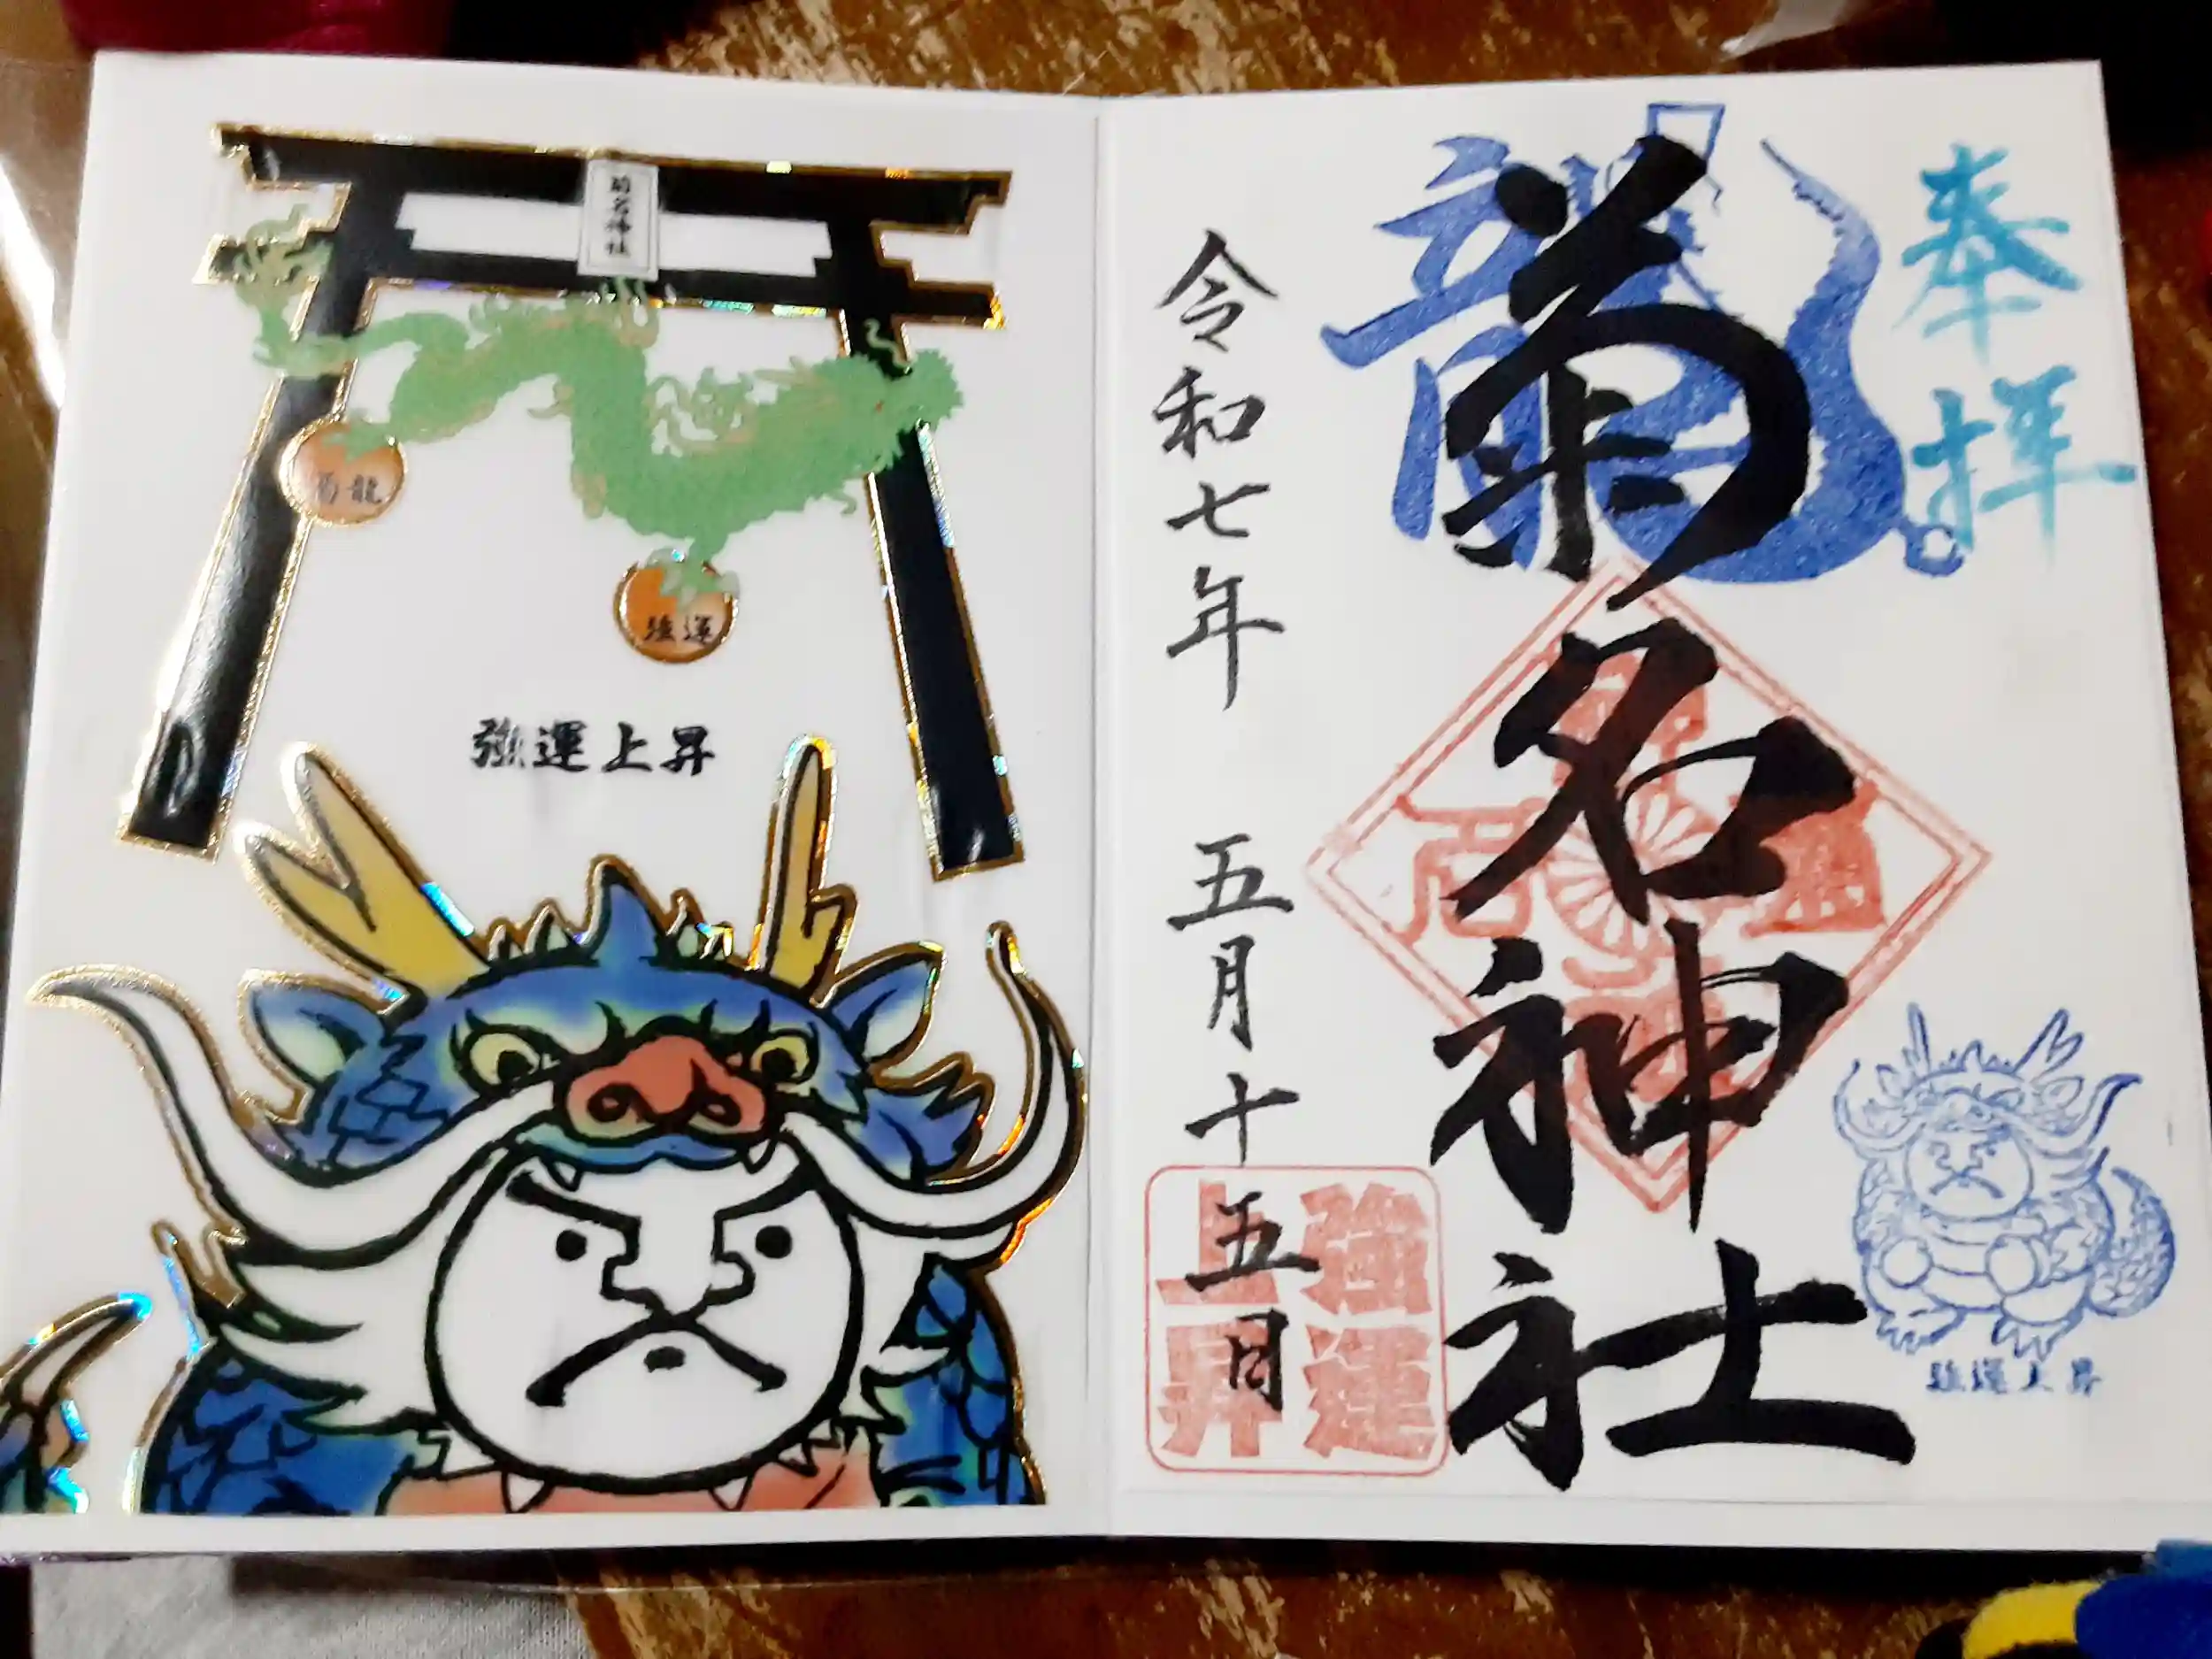 奉拝
龍
菊名神社
強運上昇
令和七年 五月十五日
強運
上昇
菊名神社
強運
強運上昇